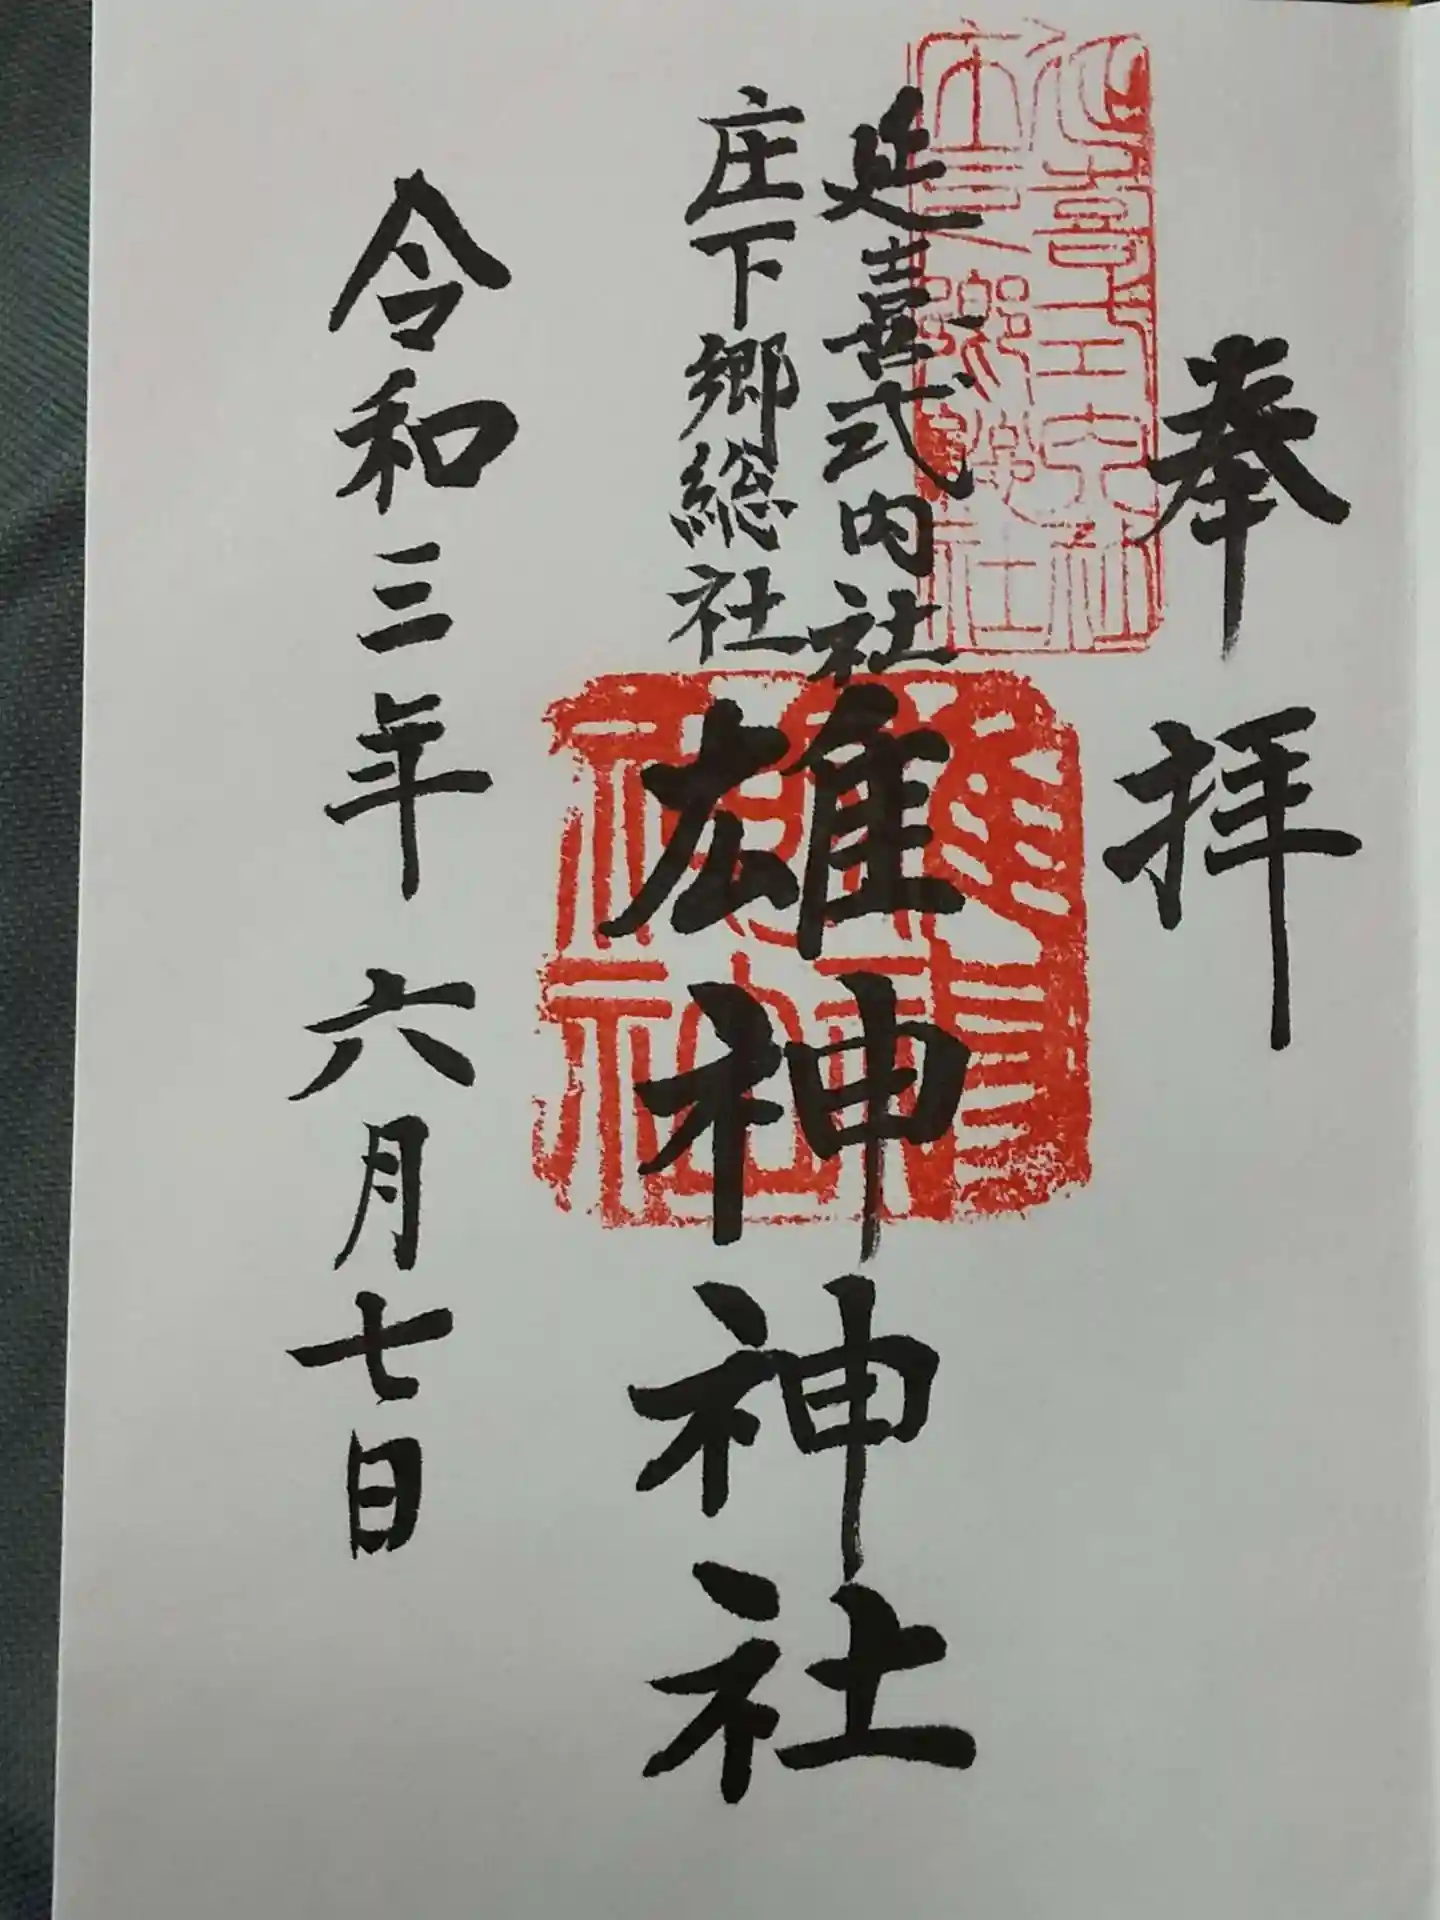 奉拝
延喜式内社
庄下郷総社
雄神神社
令和三年六月七日